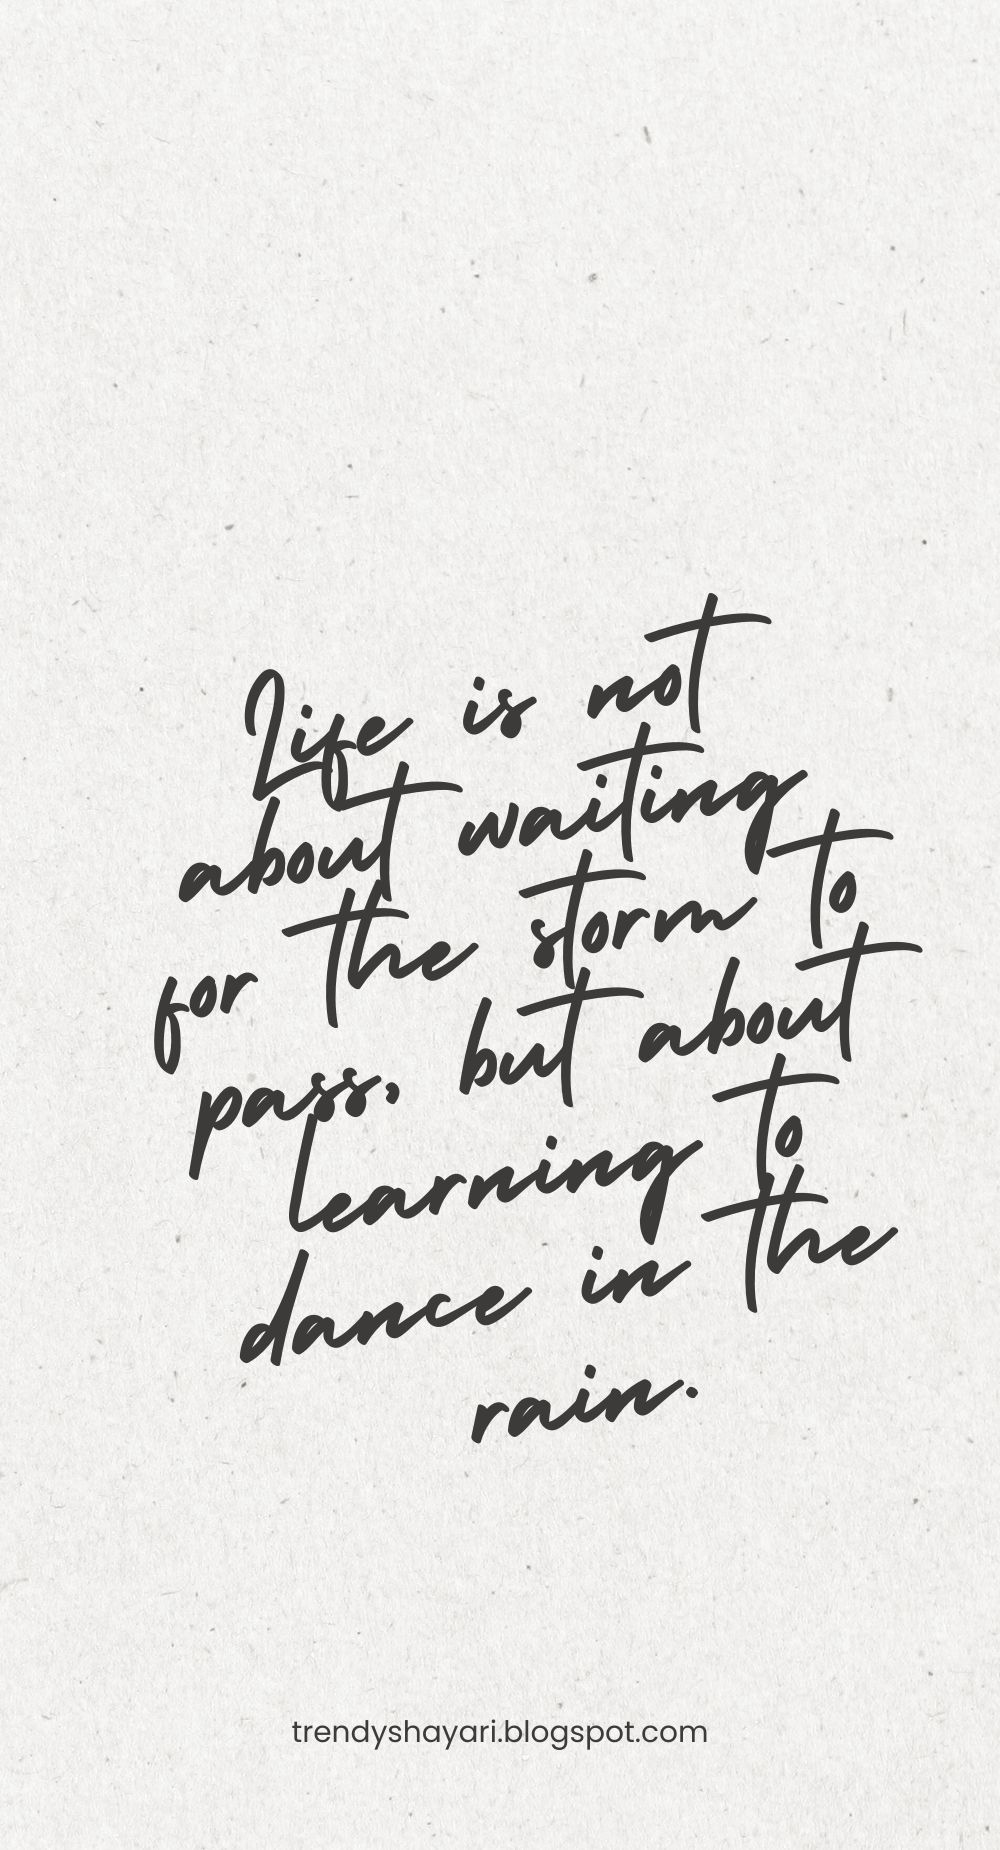 Life is not
about waiting
for the storm to
pass, but about
learning to
dance in the
rain.
trendyshayari.blogspot.com